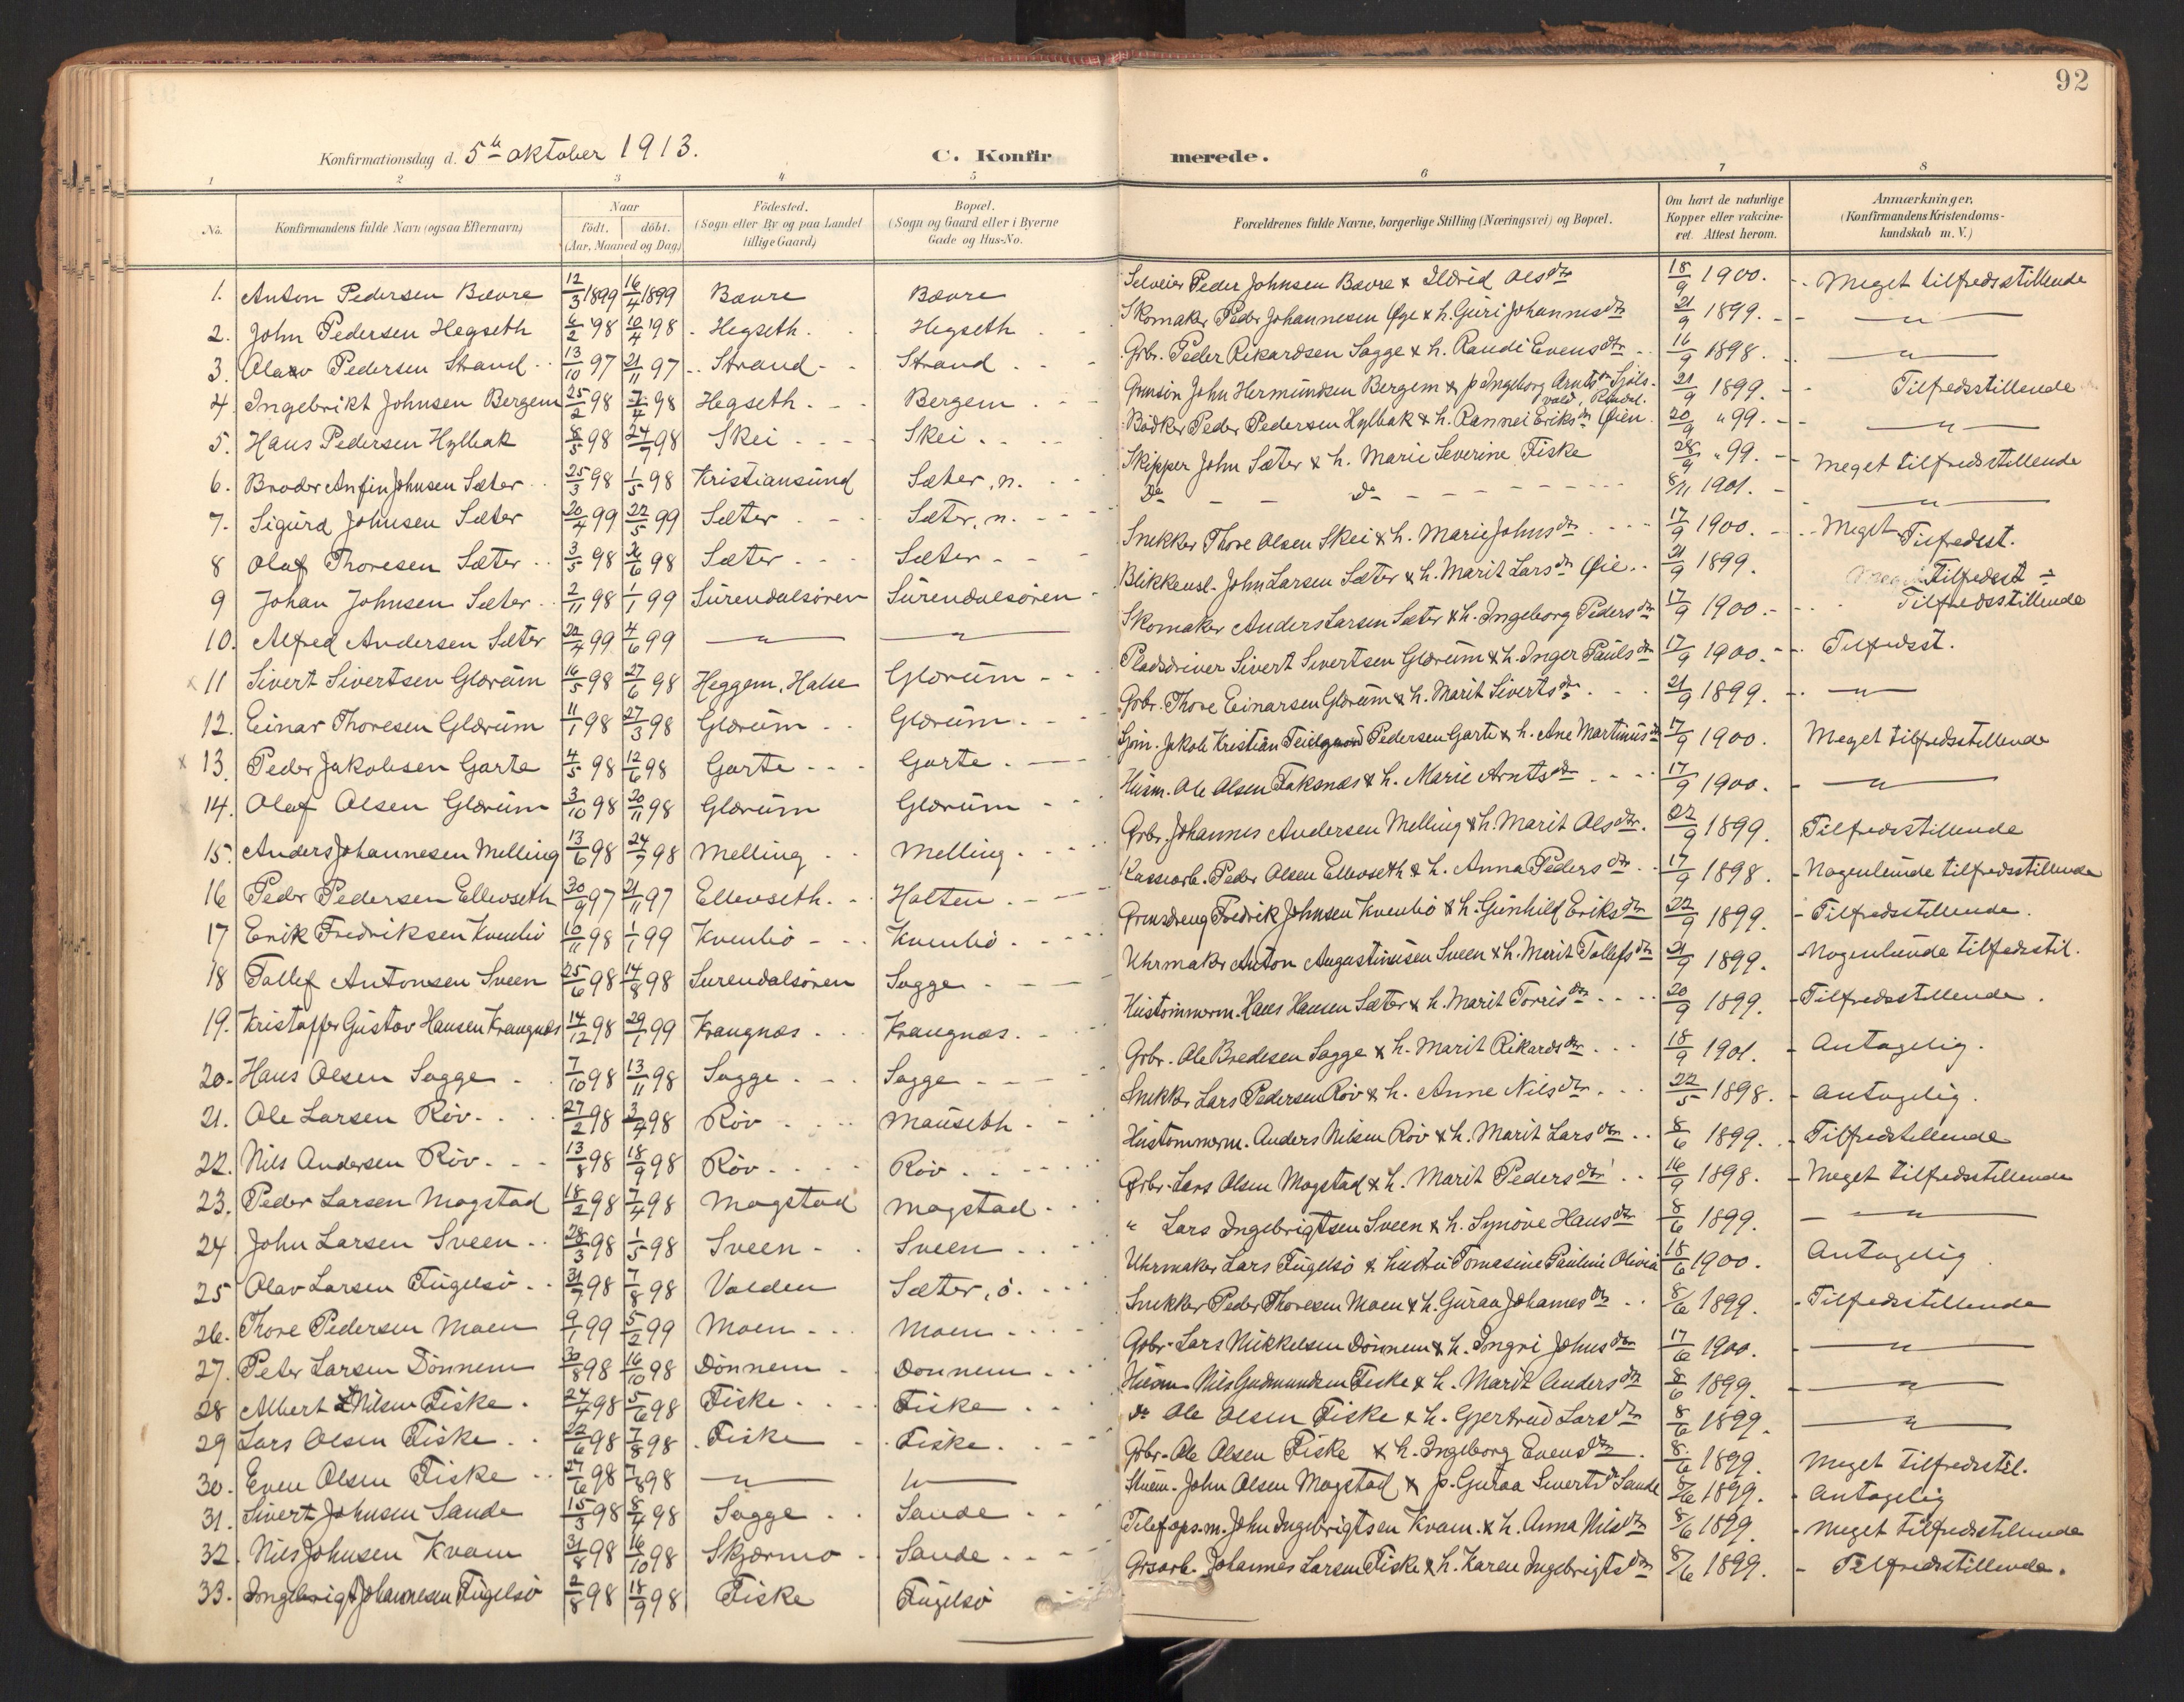 92
Konfirmationsdag d. 5te oktober 1913. C. Konfirmerede.
1 2 3 4 5 6 7 8
No. Konfirmandens fulde Navn (ogsaa Efternavn) Naar födt. döbt. (Aar, Maaned og Dag) Födested. (Sogn eller By og paa Landet tillige Gaard) Bopæl. (Sogn og Gaard eller i Byerne Gade og Hus-No. Forældrenes fulde Navne, borgerlige Stilling (Næringsvei) og Bopæl. Om havt de naturlige Kopper eller vakcineret. Attest herom. Anmærkninger. (Konfirmandens Kristendomskundskab m. V.)
1. Anton Pedersen Bævre 12/3 1899 16/4 1899 Bævre Bævre Selveier Peder Johnsen Bævre & Ildrid Olsdtr 18/9 1900. - Meget tilfredsstillende
2. John Pedersen Hegseth 6/2 '98 10/4 '98 Hegseth. Hegseth Skomaker Peder Johannesen Øye & h. Guri Johannesdtr 21/9 1899. - „
3. Olav Pedersen Strand 13/10 97 21/11 97 Strand Strand Grbr. Peder Rikardsen Sagge & h. Randi Evensdtr 16/9 1898. „
4. Ingebrikt Johnsen Bergem 25/2 98 7/4 98 Hegseth. Bergem John Hermundsen Bergem & p. Ingeborg Arntsdtr 21/9 1899. - Tilfredsstillende
5. Hans Pedersen Hylbak 8/5 98 24/7 98 Skei Skei Bödker Peder Pedersen Hylbak & h. Rannei Eriksdtr Øien 20/9 " 99. - „
6. Broder Anfin Johnsen Sæter 25/3 98 1/5 98 Kristiansund Sæter, n. Skipper John Sæter & h. Marie Severine Fiske 28/9 " 99. - Meget tilfredsstillende
7. Sigurd Johnsen Sæter 20/4 99 22/5 99 Sæter Sæter, n. Do - - Do - - 8/11 1901. - „
8 Olaf Thoresen Sæter 3/5 98 26/6 98 Sæter Sæter Snekker Thore Olsen Skei & h. Marie Johnsdtr 17/9 1900. - Meget Tilfredsst.
9 Johan Johnsen Sæter 2/11 98 1/1 99 Surendalsören Surendalsören Blikkensl. John Larsen Sæter & h. Marit Larsdtr Øie 21/9 1899. Tilfredsst
10. Alfred Andersen Sæter 22/4 99 4/6 99 „ „ Skomaker Anders Larsen Sæter & h. Ingeborg Pedersdtr 17/9 1900. - Tilfredsstillende
x 11 Sivert Sivertsen Glærum 16/5 98 27/6 98 Heggem, Halse Glærum Pladsdriver Sivert Sivertsen Glærum & h. Inger Paulsdtr 17/9 1900. - Tilfredsst.
12. Einar Thoresen Glærum 11/1 98 27/3 98 Glærum Glærum Grbr. Thore Einarsen Glærum & h. Marit Sivertsdtr 21/9 1899. - „
x 13. Peder Jakobsen Garte 4/5 98 12/6 98 Garte Garte Jakob Kristian Pedersen Garte & h. Ane Martinusdtr 17/9 1900. Meget tilfredsstillende
x 14. Olaf Olsen Glærum 3/10 98 20/11 98 Glærum Glærum Husm. Ole Olsen Taksnæs & h. Marie Arntsdtr 17/9 1900. - „
15. Anders Johannesen Melling 13/6 98 24/7 98 Melling Melling Grbr. Johannes Andersen Melling & h. Marit Olsdtr. 22/9 1899. Tilfredsstillende
16 Peder Pedersen Ellevseth 30/9 97 21/11 97 Ellevseth. Holten Peder Olsen Ellevseth & h. Anna Pedersdtr 17/9 1898. - Nogenlunde tilfredsstillende
17 Erik Fredriksen Kvenbö 10/11 98 1/1 99 Kvenbö Kvenbö Fredrik Johnsen Kvenbö & h. Gunhild Eriksdtr 22/9 1899. - Tilfredsstillende.
18 Tollef Antonsen Sveen 25/6 98 14/8 98 Surendalsören Sagge Uhrmaker Anton Augustinusen Sveen & h. Marit Tollefsdtr 21/9 1899. - Nogenlunde tilfredsstil.
19. Kristoffer Gustav Hansen Krangnæs 14/12 98 29/1 99 Krangnæs Krangnæs. Hustömmerm. Hans Hansen Sæter & h. Marit Torrisdtr 20/9 1899. - Tilfredsstillende.
20. Hans Olsen Sagge 7/10 98 13/11 98 Sagge Sagge Grbr. Ole Bredesen Sagge & h. Marit Rikardsdtr 18/9 1901. - Antagelig.
21. Ole Larsen Röv 27/2 98 3/4 98 Röv Mauseth Snekker Lars Pedersen Röv & h. Anne Nilsdtr 22/5 1898. - Antagelig.
22. Nils Andersen Röv 13/8 98 18/9 98 Röv Röv Hustömmerm. Anders Nilsen Röv & h. Marit Larsdtr 8/6 1899. - Tilfredstillende
23. Peder Larsen Mogstad 18/2 98 7/4 98 Mogstad Mogstad Grbr. Lars Olsen Mogstad & h. Marit Pedersdtr 16/9 1898. - Meget tilfredsstillende
24 John Larsen Sveen 28/3 98 1/5 98 Sveen Sveen " Lars Ingebrigtsen Sveen & h. Synöve Hansdtr 8/6 1899. „
25 Olav Larsen Fugelsö 31/7 98 7/8 98 Valden Sæter, ö. Uhrmaker Lars Fugelsö & hustru Tomasine Pauline Olivia 18/6 1900. Antagelig
26. Thore Pedersen Moen 9/1 99 5/2 99 Moen Moen Snekker Peder Thoresen Moen & h. Guraa Johannesdtr 8/6 1899. - Tilfredsstillende
27. Peter Larsen Dönnem 30/8 98 16/10 98 Dönnem Dönnem Grbr. Lars Mikkelsen Dönnem & h. Ingri Johnsdtr 17/6 1900. „
28 Albert Nilsen Fiske. 24/4 98 5/6 98 Fiske Fiske Husm. Nils Gudmundsen Fiske & h. Marit Andersdtr 8/6 1899. „
29 Lars Olsen Fiske 22/6 98 7/8 98 Fiske Fiske do Ole Olsen Fiske & h. Gjertrud Larsdtr 8/6 1899. „
30. Even Olsen Fiske 27/6 98 7/8 98 „ „ Grbr. Ole Olsen Fiske & h. Ingeborg Evensdtr 8/6 1899. Meget tilfredsstil.
31. Sivert Johnsen Sande 15/3 98 8/4 98 Sagge Sande John Olsen Mogstad & p. Guraa Sivertsdr Sande 8/6 1899. - Antagelig
32. Nils Johnsen Kvam 31/8 98 16/10 98 Skjærmo Sande John Ingebrigtsen Kvam & h. Anna Nilsdtr 8/6 1899. - Meget tilfredsstillende
33. Ingebrigt Johannesen Fugelsö 2/8 98 18/9 98 Fiske Fugelsö Johannes Larsen Fiske & h. Karen Ingebrigtsdtr 8/6 1899. - Tilfredsstillende.